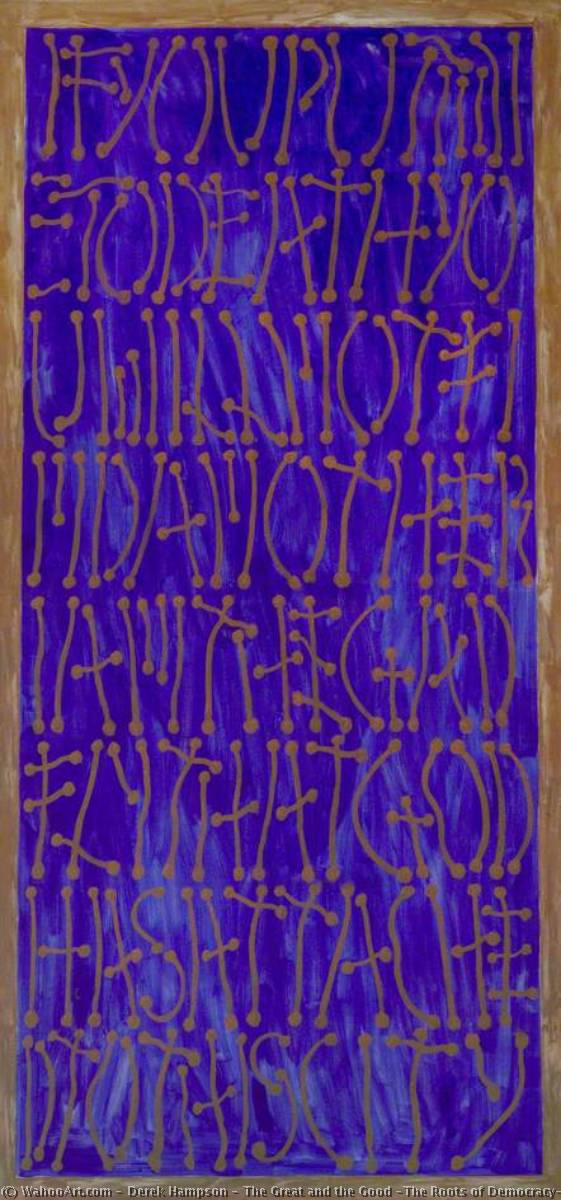 IF YOU PUT M
E TO DEATH YO
U WILL NOT FI
ND ANOTHER
I AM THE GAD
FLY THAT GOD
HAS ATTACHE
D TO THIS CITY
(C) WahooArt.com - Derek Hampson - The Great and the Good -The Roots of Democracy-